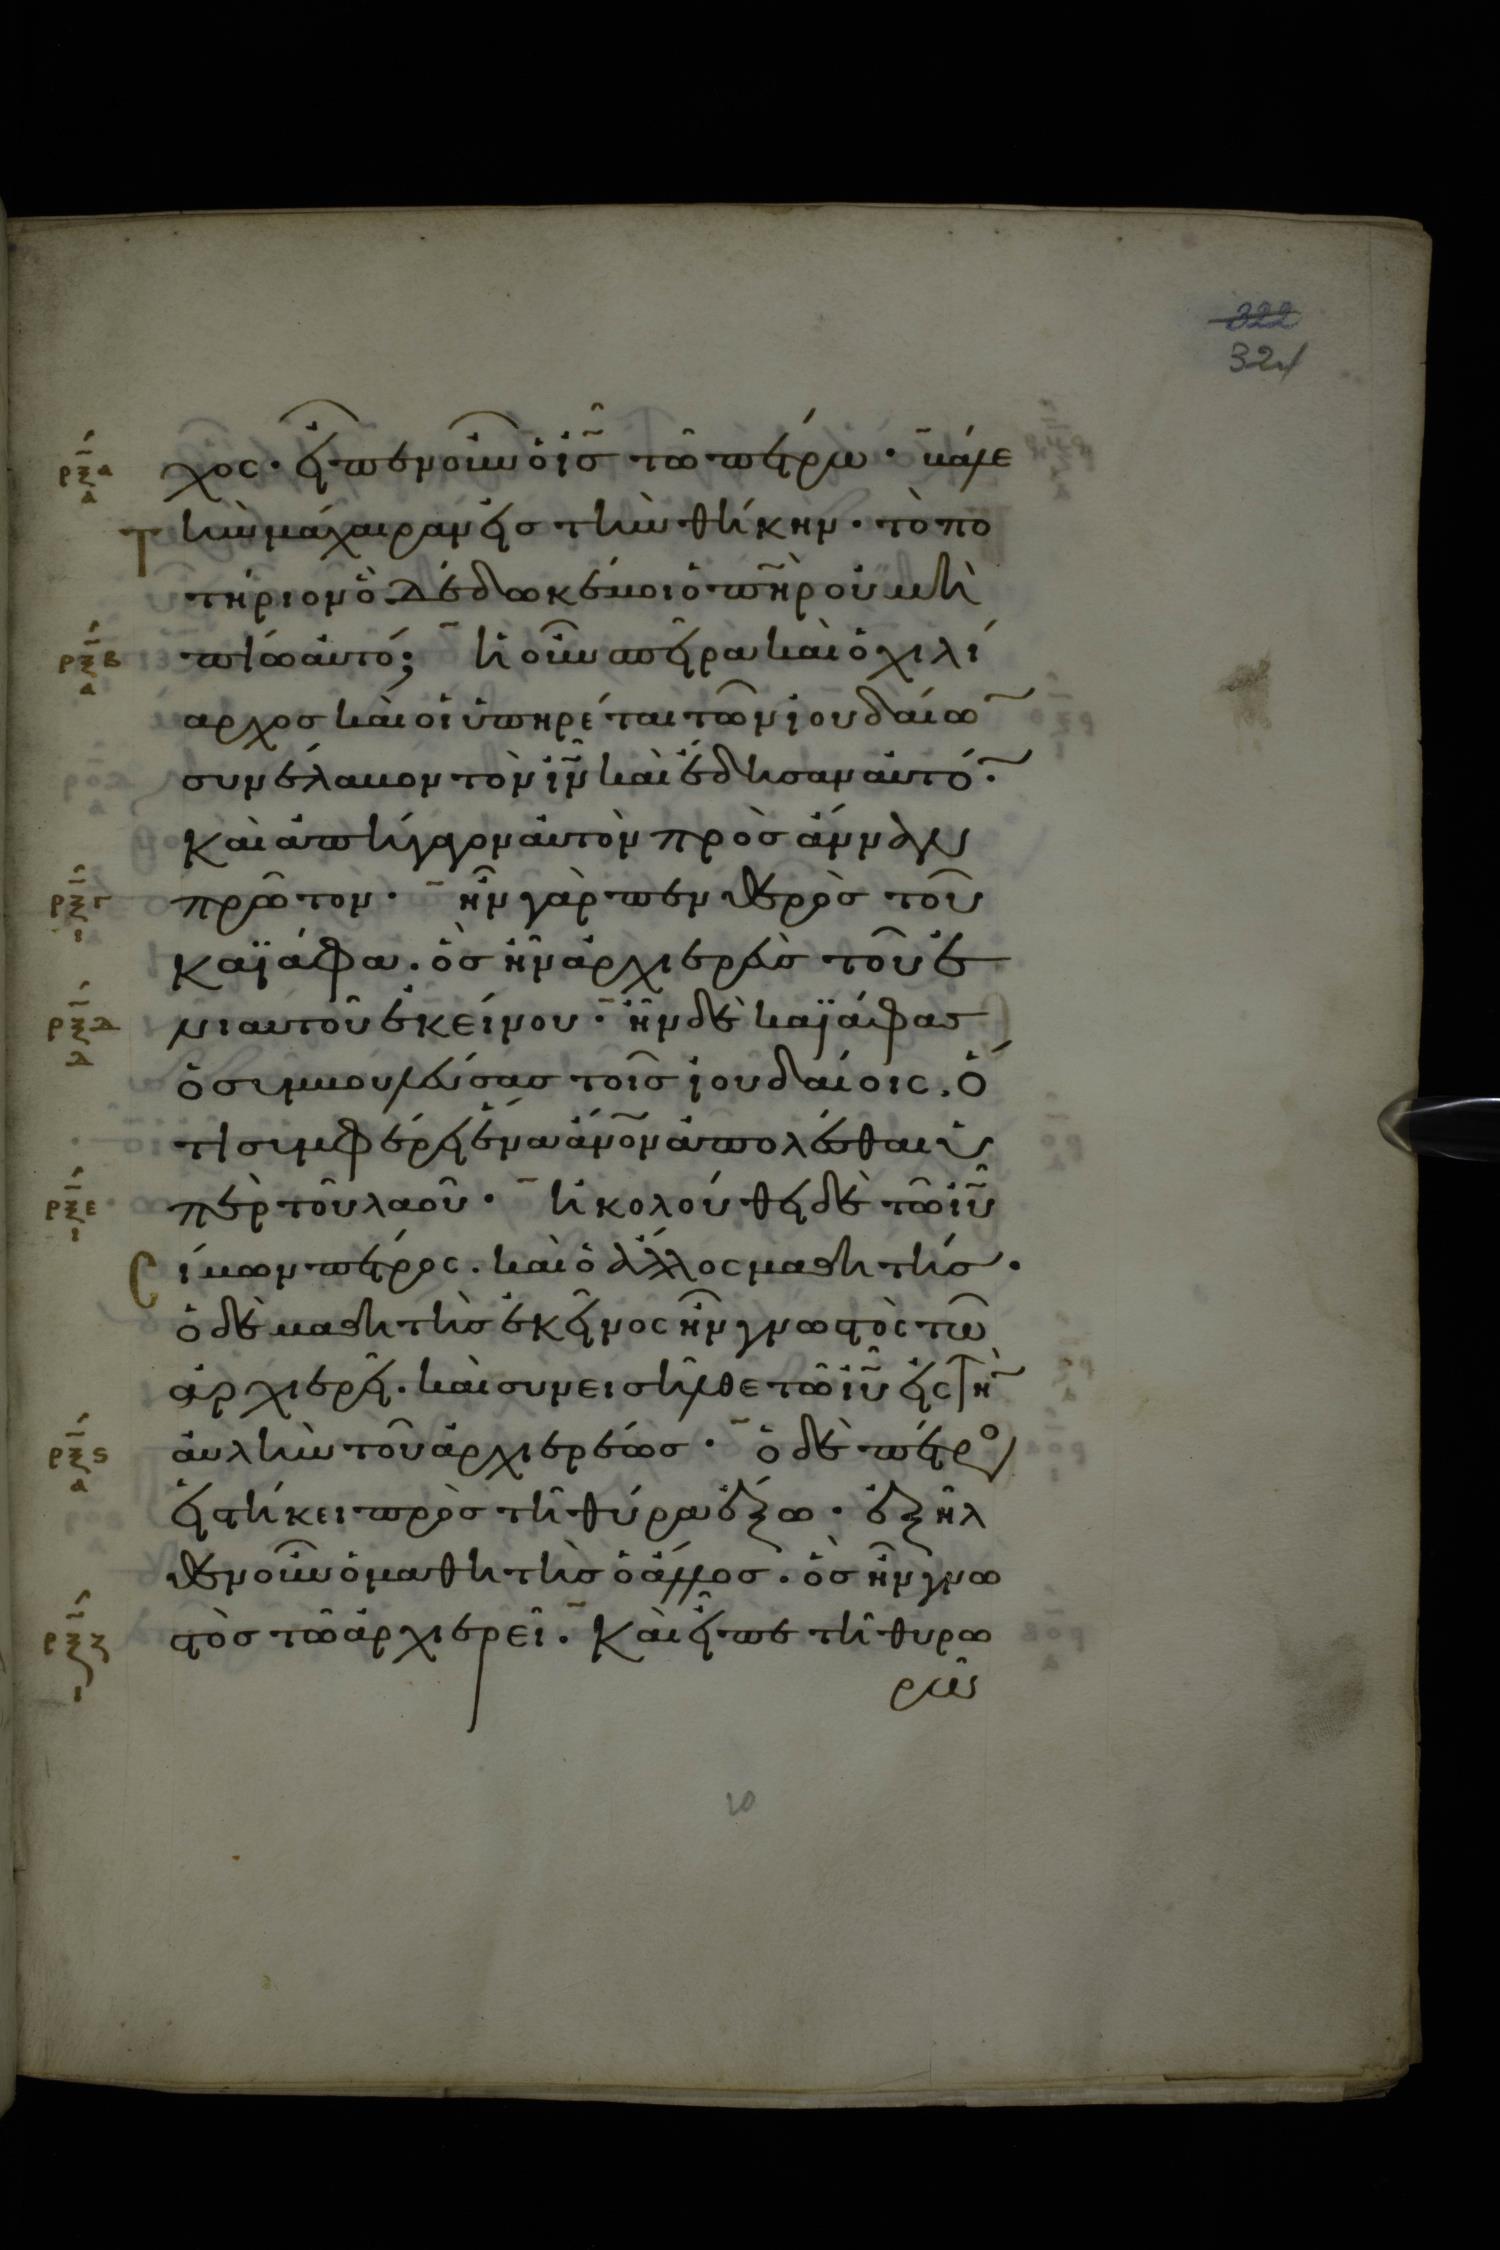 322
321
ρξα
α
χος· εἶπεν οὖν ὁ ις̅ τῶ πέτρω· βάλε
Τὴν μάχαιραν εἰς τὴν θήκην· τὸ πο
τήριον ὃ δέδωκέ μοι ὁ πη̅ρ οὐ μὴ
ρξβ
α
πίω αὐτό; ἡ οὖν σπεῖρα καὶ ὁ χιλί
αρχος καὶ οἱ ὑπηρέται τῶν ἰουδαίω̅
συνέλαβον τὸν ιν̅ καὶ ἔδησαν αὐτό̅·
Καὶ ἀπήγαγον αὐτὸν πρὸς ἄνναν
ρξγ
ι
πρῶτον· ἦν γὰρ πενθερὸς τοῦ
Καϊάφα. ὃς ἦν ἀρχιερεὺς τοῦ ἐ
ρξδ
δ
νιαυτοῦ ἐκείνου· ἦν δὲ καϊάφας
ὁ συμβουλεύσας τοῖς ἰουδαίοις. ὅ
τι συμφέρει ἕνα ἄνο̅ν ἀπολέσθαι ὑ
ρξε
ι
πὲρ τοῦ λαοῦ· ἠκολούθει δὲ τῶ ιυ̅
Σίμων πέτρος. καὶ ὁ ἄλλος μαθητής·
ὁ δὲ μαθητὴς ἐκεῖνος ἦν γνωστὸς τῶ
ἀρχιερεῖ. καὶ συνεισῆλθε τῶ ιυ̅ εἰς τὴ̅
ρξς
α
αὐλὴν τοῦ ἀρχιερέως· ὁ δὲ πέτρο
εἱστήκει πρὸς τῆ θύρα ἔξω· ἐξῆλ
θεν οὖν ὁ μαθητὴς ὁ ἄλλος. ὃς ἦν γνω
ρξζ
ι
στὸς τῶ ἀρχιερεῖ. Καὶ εἶπε τῆ θυρω
ρῶ
10